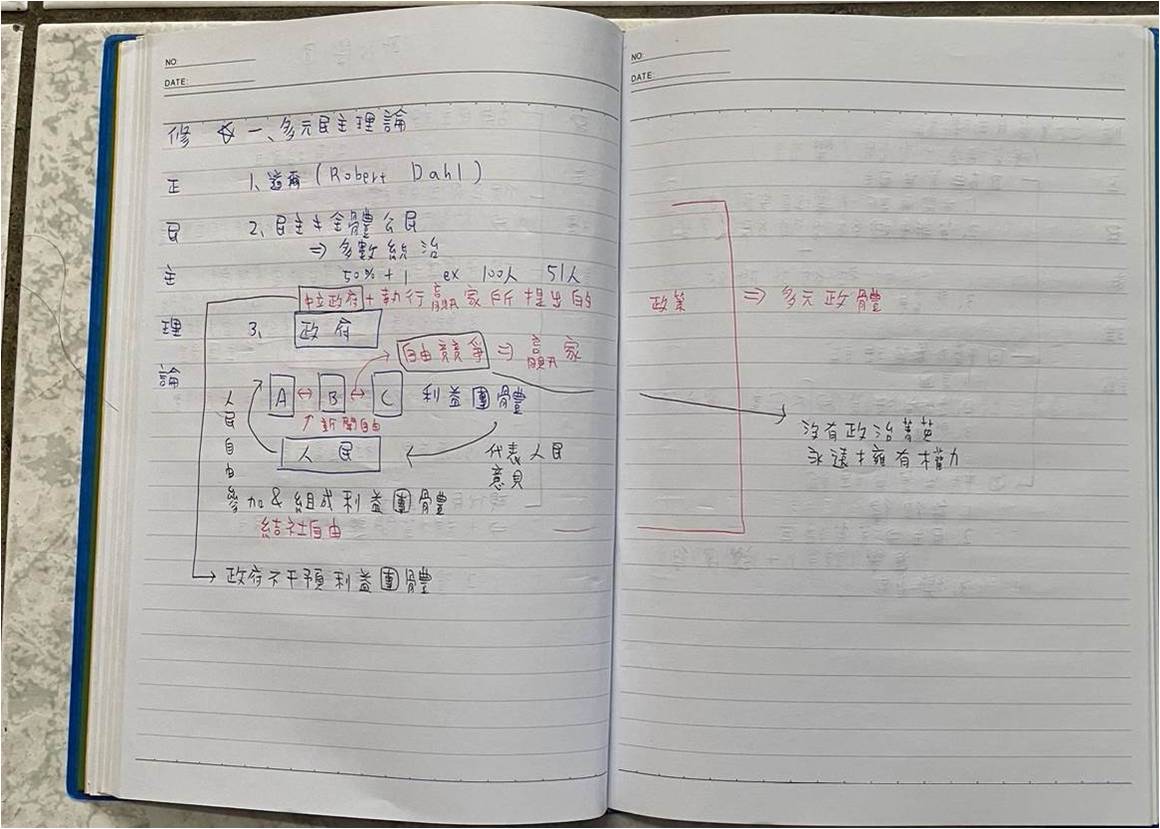 NO:
DATE:
修 ☆ 一、多元民主理論
正 1、道爾 (Robert Dahl)
民 2、民主≠全體公民
⇒ 多數統治
主 50%+1 ex 100人 51人
中立政府 + 執行贏家所提出的
理 3、政府
自由競爭 ⇒ 贏家
論
A ↔ B ↔ C 利益團體
↑ 新聞自由
人民
代表人民
意見
人民自由
參加&組成利益團體
結社自由
→ 政府不干預利益團體
NO:
DATE:
政策 ⇒ 多元政體
沒有政治菁英
永遠擁有權力